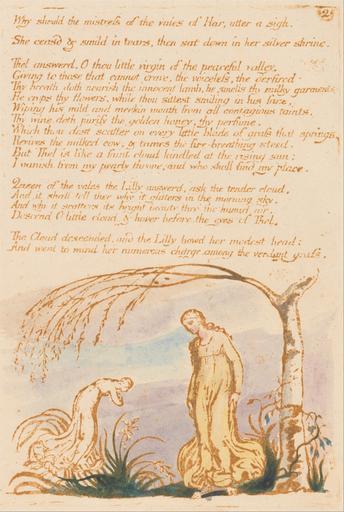 2
Why should the mistress of the vales of Har, utter a sigh.
She ceasd & smild in tears, then sat down in her silver shrine.
Thel answerd. O thou little virgin of the peaceful valley.
Giving to those that cannot crave, the voiceless, the o'ertired.
Thy breath doth nourish the innocent lamb, he smells thy milky garments,
He crops thy flowers, while thou sittest smiling in his face,
Wiping his mild and meekin mouth from all contagious taints.
Thy wine doth purify the golden honey, thy perfume,
Which thou dost scatter on every little blade of grass that springs
Revives the milked cow, & tames the fire-breathing steed.
But Thel is like a faint cloud kindled at the rising sun:
I vanish from my pearly throne, and who shall find my place.
Queen of the vales the Lilly answerd, ask the tender cloud,
And it shall tell thee why it glitters in the morning sky,
And why it scatters its bright beauty thro' the humid air.
Descend O little cloud & hover before the eyes of Thel.
The Cloud descended, and the Lilly bowd her modest head:
And went to mind her numerous charge among the verdant grass.